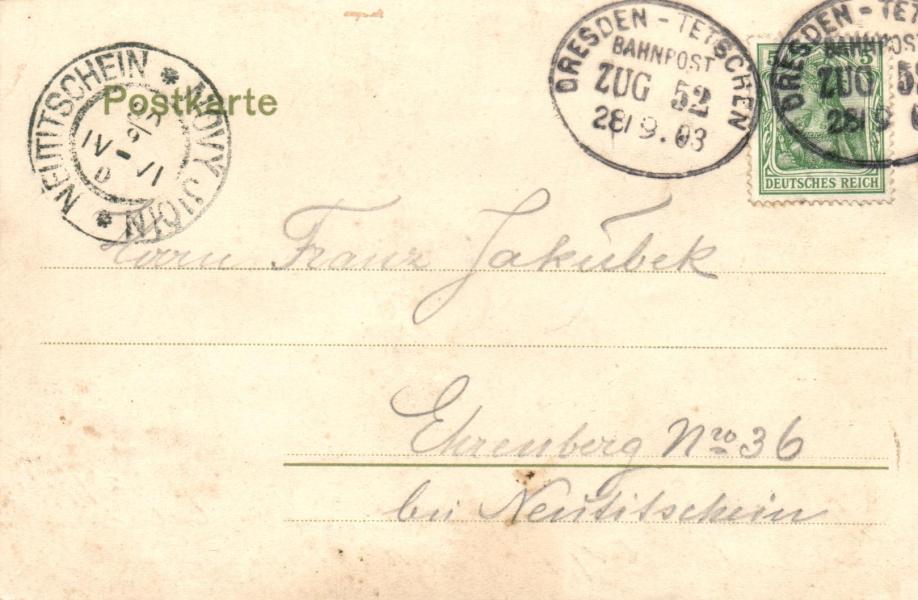 DRESDEN - TETSCHEN
BAHNPOST
ZUG 52
28/9.03
DRESDEN - TE
BAHNPOST
ZUG 52
28/9 0
5 5
DEUTSCHES REICH
NEUTITSCHEIN * NOVÝ JIČIN *
Postkarte
Herrn Franz Jakubek
Ehrenberg Nro 36
bei Neutitschein